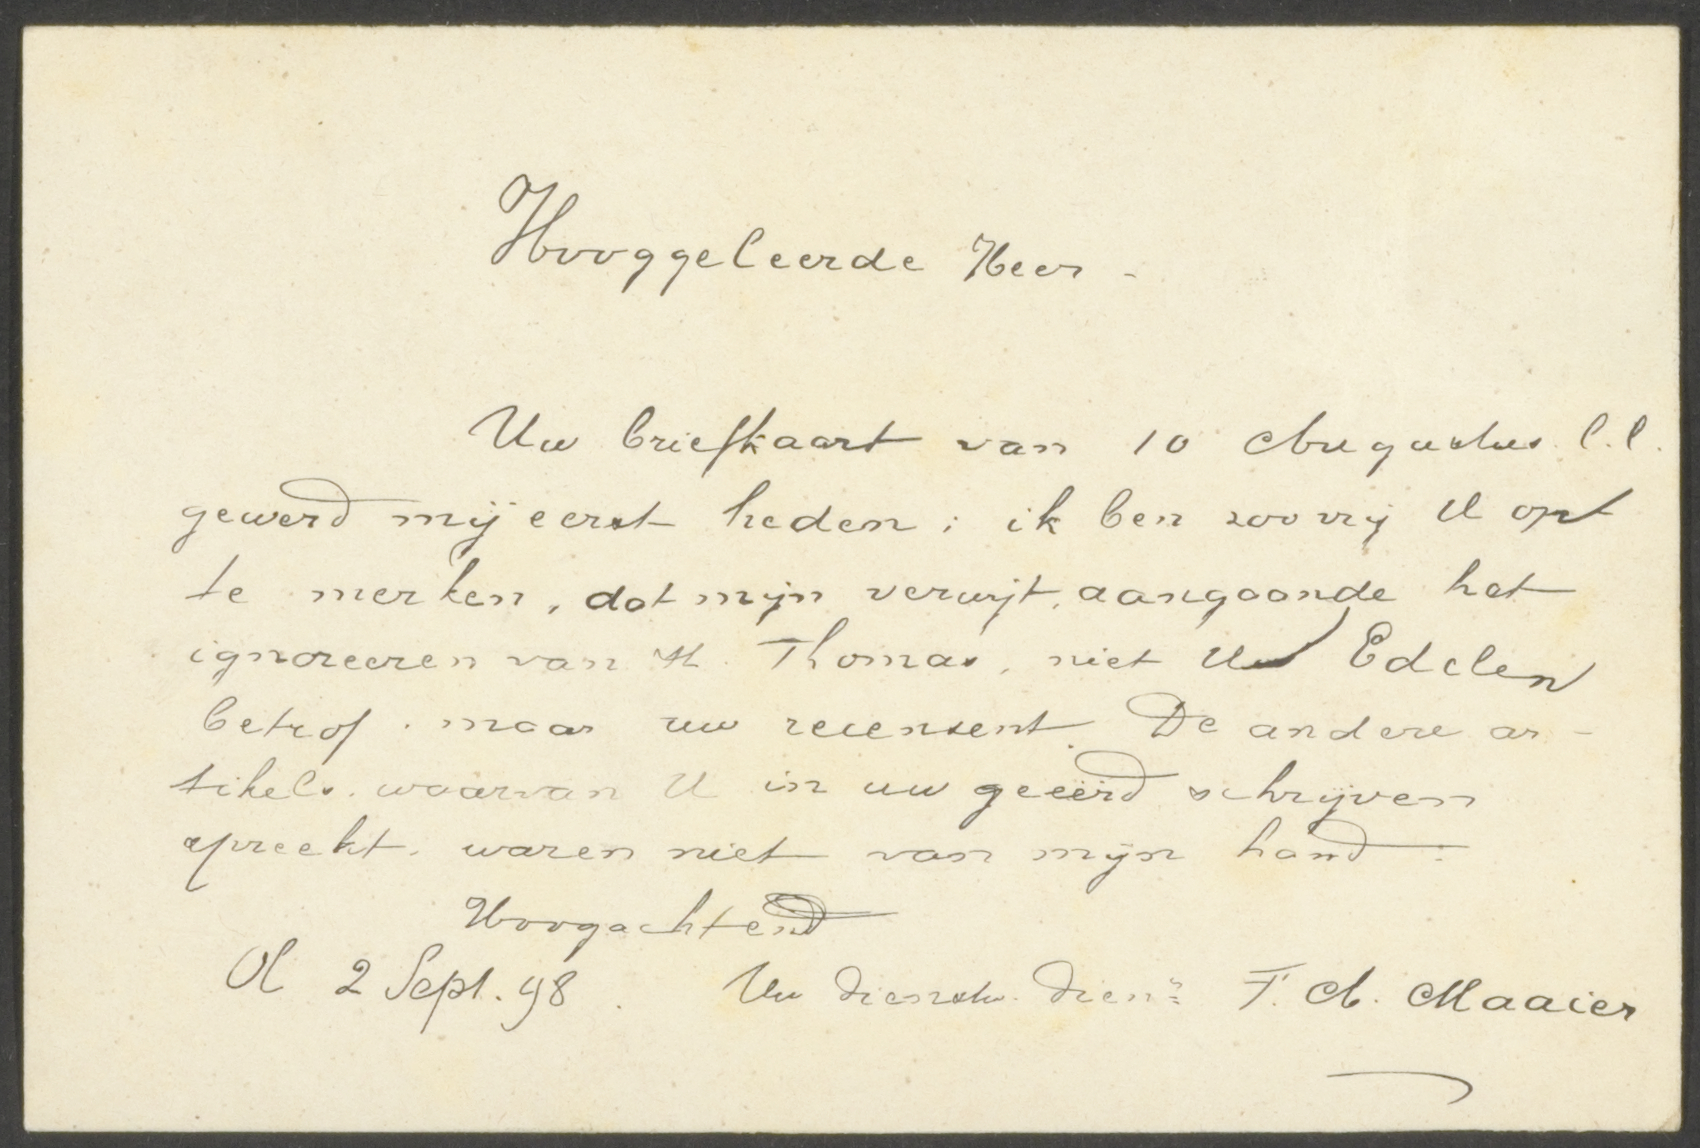 Hooggeleerde Heer -
Uw briefkaart van 10 Augustus l.l.
gewerd mij eerst heden; ik ben zoo vrij U op
te merken, dat mijn verwijt, aangaande het
ignoreeren van St. Thomas, niet Uw Edelen
betrof. maar uw recensent. De andere ar-
tikels. waarvan U in uw geëerd schrijven
spreekt. waren niet van mijn hand.
Hoogachtend
2 Sept. 98. Uw dienstw. dienr F. A. Maaier